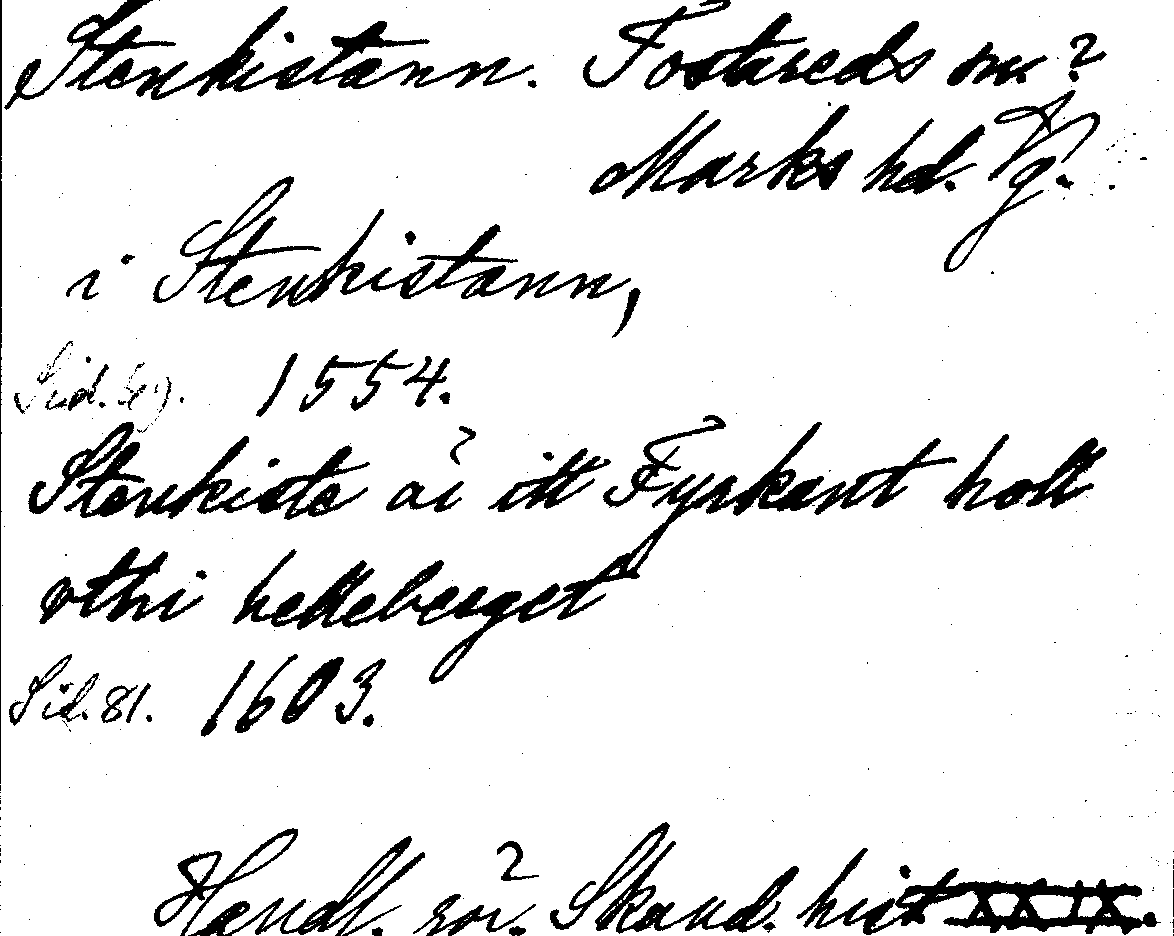 Stenkistann. Fostareds sn?
Marks hd. Vg.
i Stenkistann,
Sid. 1554.
Stenkiste är itt Fyrkant holt
vthi helleberget
Sid. 81. 1603.
Handl. rör. Skand. hist XXIX.